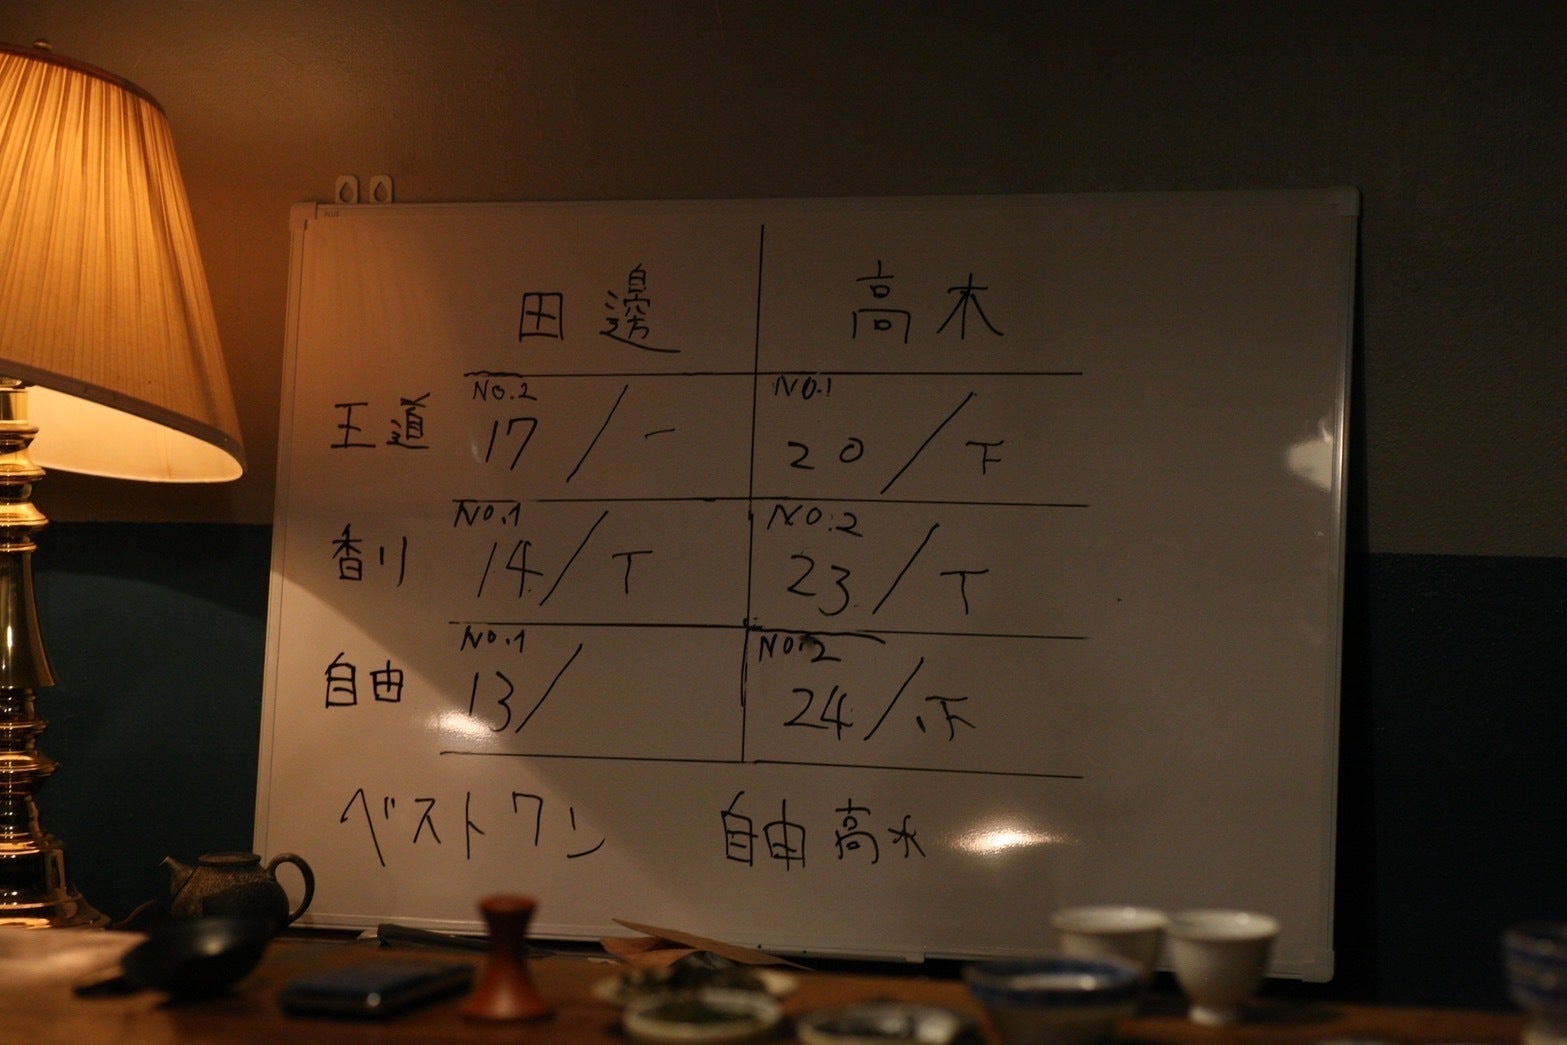 PLUS
田邊 高木
NO.2 NO.1
王道 17 / 一 20 / 下
NO.1 NO.2
香り 14 / T 23 / T
NO.1 NO.2
自由 13 / 24 /
ベストワン 自由 高木